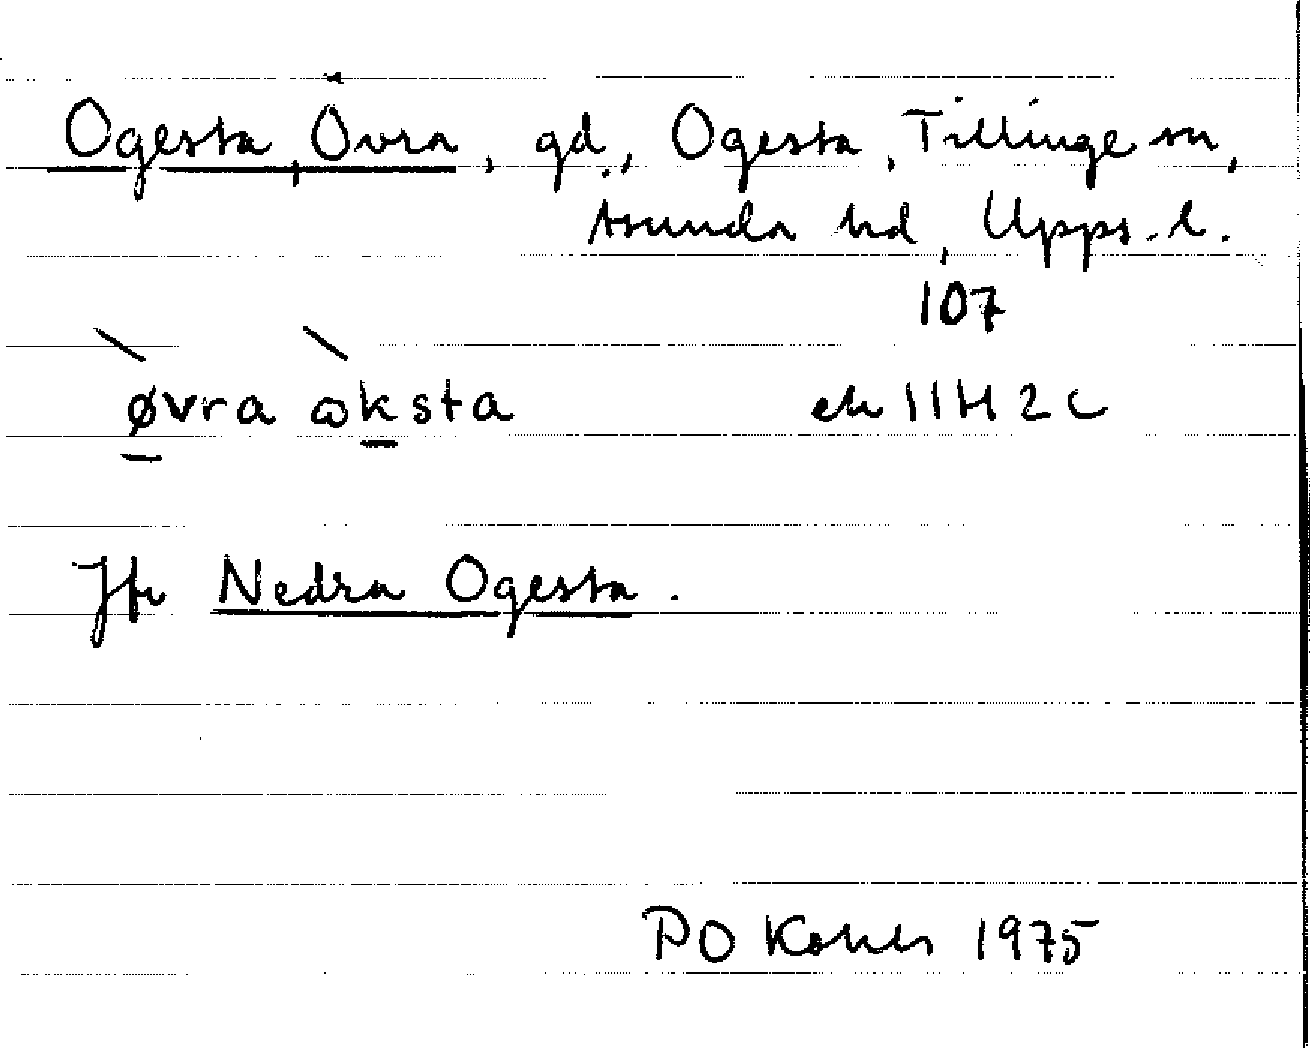 Ogesta, Övra, gd., Ogesta, Tillinge sn,
Åsunda hd, Upps. l.
107
øvra ωksta ek 11H2c
Jfr Nedra Ogesta.
PO 1975